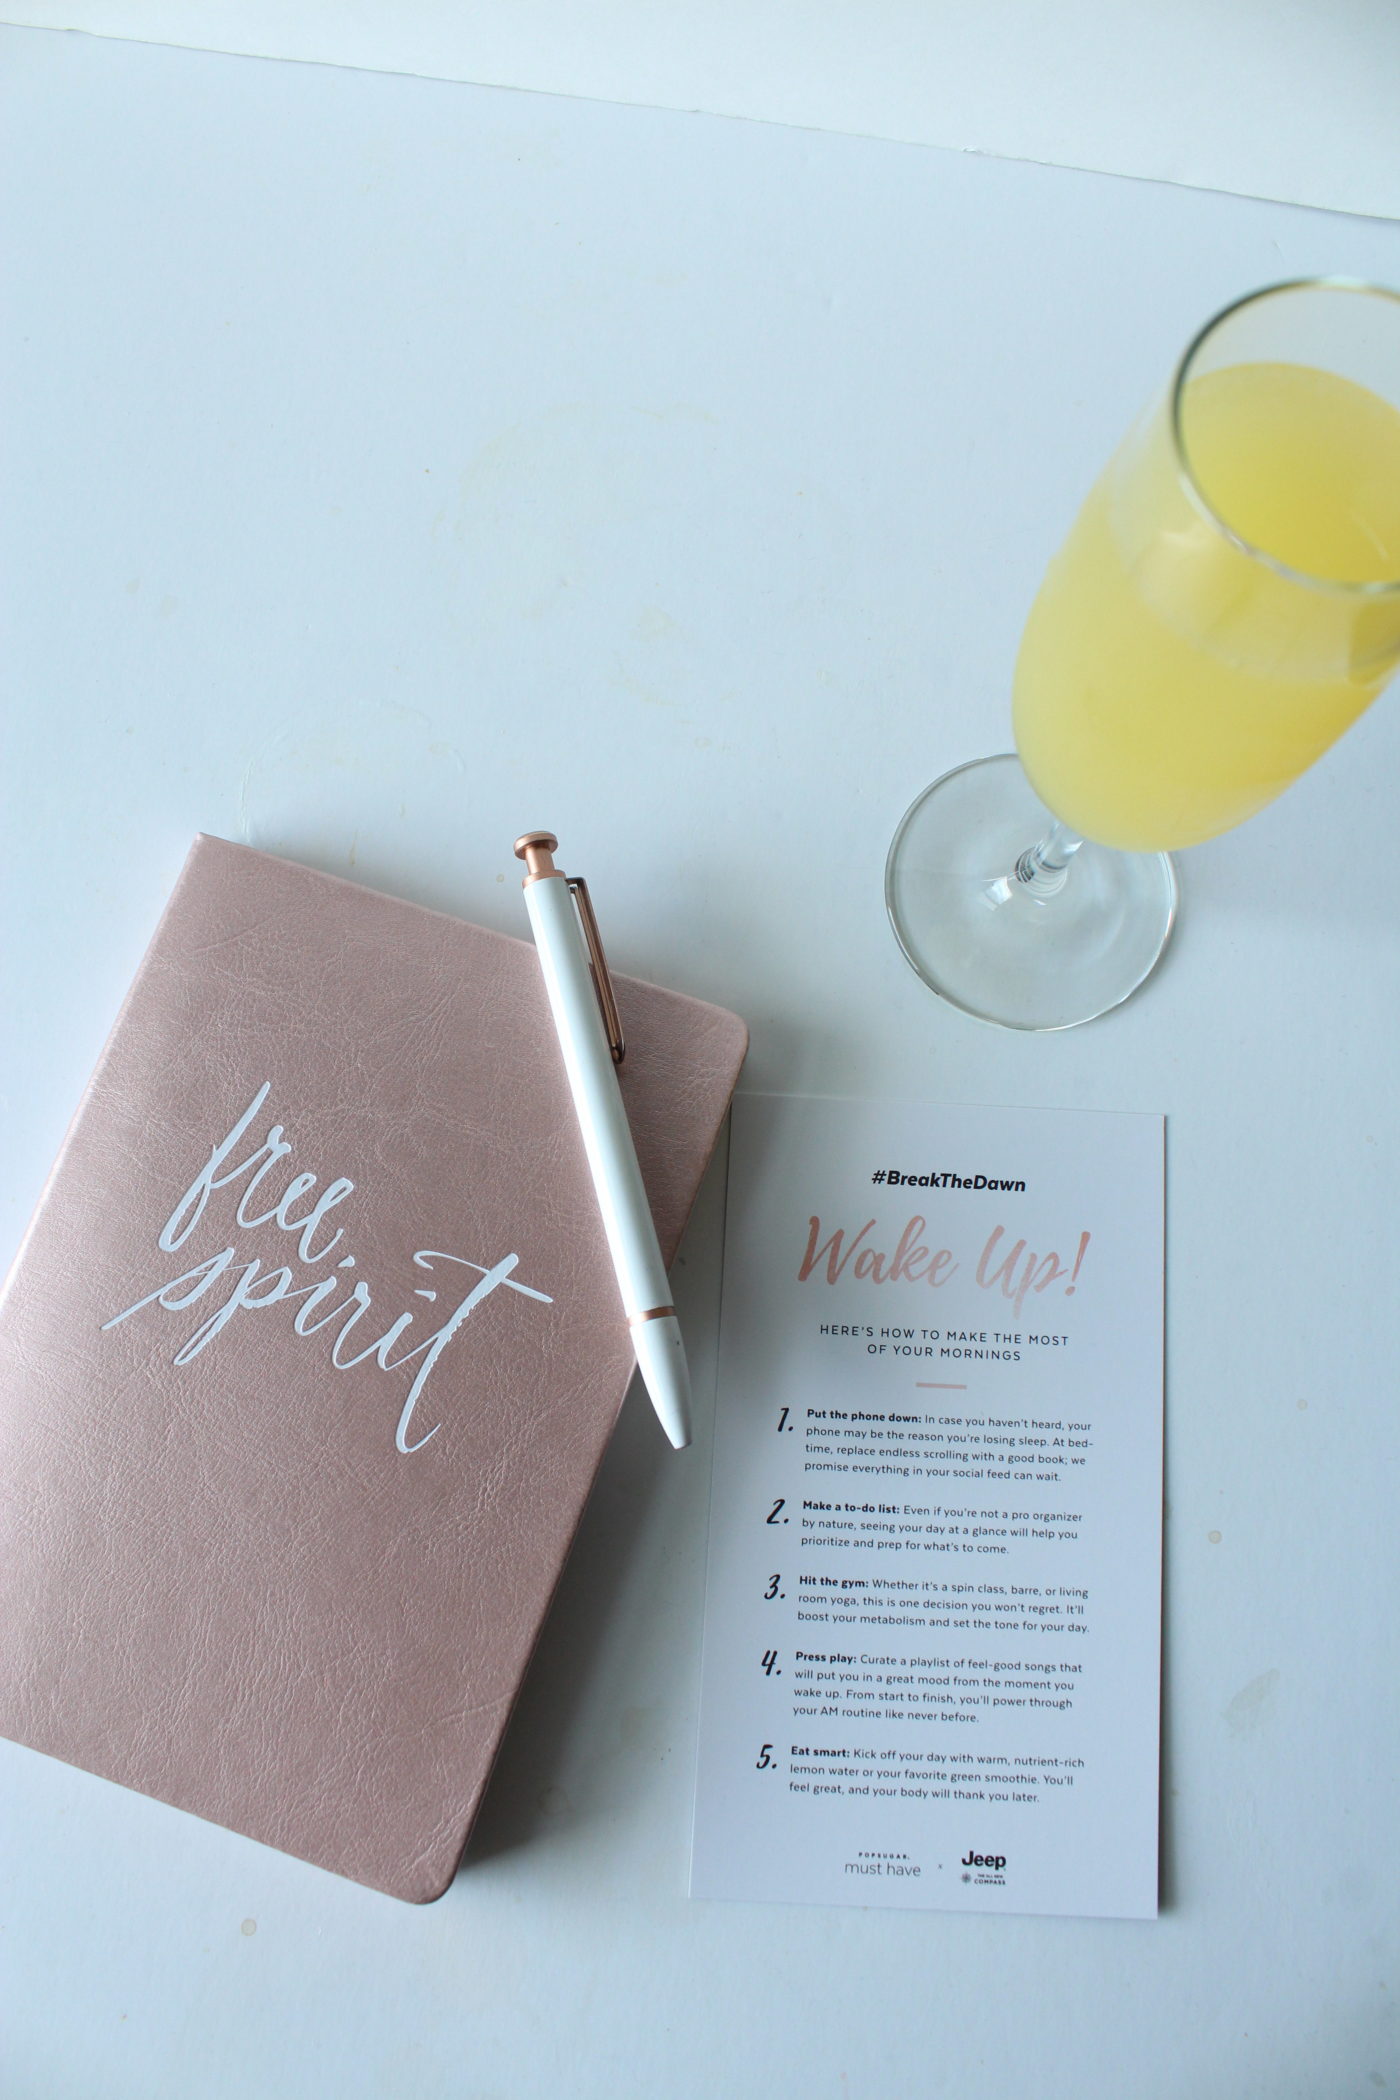 free
spirit
#BreakTheDawn
Wake Up!
HERE'S HOW TO MAKE THE MOST
OF YOUR MORNINGS
1. Put the phone down: In case you haven't heard, your
phone may be the reason you're losing sleep. At bed-
time, replace endless scrolling with a good book; we
promise everything in your social feed can wait.
2. Make a to-do list: Even if you're not a pro organizer
by nature, seeing your day at a glance will help you
prioritize and prep for what's to come.
3. Hit the gym: Whether it's a spin class, barre, or living
room yoga, this is one decision you won't regret. It'll
boost your metabolism and set the tone for your day.
4. Press play: Curate a playlist of feel-good songs that
will put you in a great mood from the moment you
wake up. From start to finish, you'll power through
your AM routine like never before.
5. Eat smart: Kick off your day with warm, nutrient-rich
lemon water or your favorite green smoothie. You'll
feel great, and your body will thank you later.
POPSUGAR.
must have x Jeep
THE ALL NEW
COMPASS